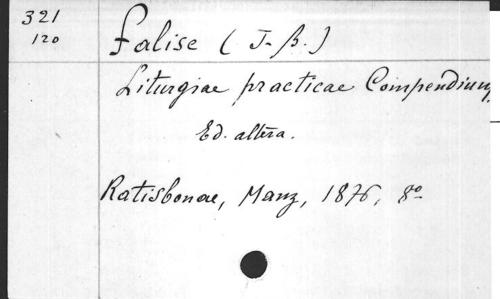 321
120
Falise (J-B.)
Liturgiae practicae Compendium,
Ed. altera.
Ratisbonae, Manz, 1876, 8º